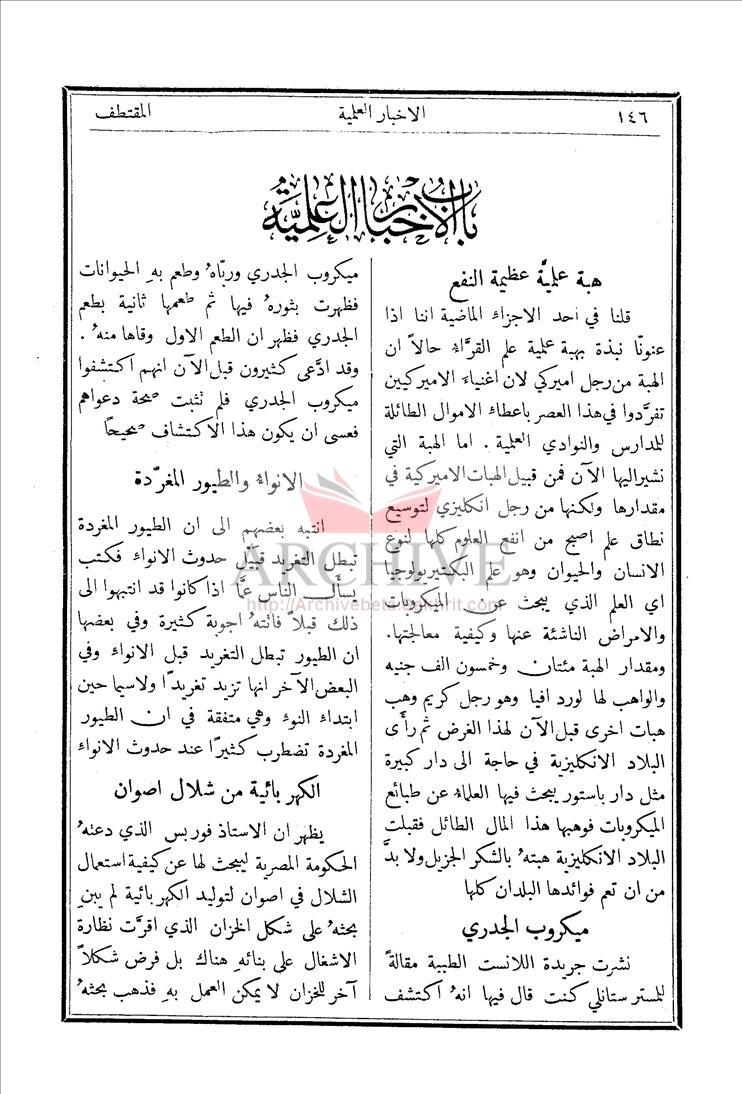 ١٤٦
الاخبار العلمية
المقتطف
باب الاخبار العلمية
هبة علميَّة عظيمة النفع
قلنا في احد الاجزاء الماضية اننا اذا
عنونَّا نبذة بهبة علمية علم القرَّاء حالاً ان
الهبة من رجل اميركي لان اغنياء الاميركيين
تفرَّدوا في هذا العصر باعطاء الاموال الطائلة
للمدارس والنوادي العلمية . اما الهبة التي
نشير اليها الآن فمن قبيل الهبات الاميركية في
مقدارها ولكنها من رجل انكليزي لتوسيع
نطاق علم اصبح من انفع العلوم كلها لنوع
الانسان والحيوان وهو علم البكتيريولوجيا
اي العلم الذي يبحث عن الميكروبات
والامراض الناشئة عنها وكيفية معالجتها.
ومقدار الهبة مئتان وخمسون الف جنيه
والواهب لها لورد افيا وهو رجل كريم وهب
هبات اخرى قبل الآن لهذا الغرض ثم رأى
البلاد الانكليزية في حاجة الى دار كبيرة
مثل دار باستور يبحث فيها العلماء عن طبائع
الميكروبات فوهبها هذا المال الطائل فقبلت
البلاد الانكليزية هبتهُ بالشكر الجزيل ولا بدَّ
من ان تعم فوائدها البلدان كلها
ميكروب الجدري
نشرت جريدة اللانست الطبية مقالةً
للمستر ستانلي كنت قال فيها انهُ اكتشف
ميكروب الجدري وربَّاهُ وطعم بهِ الحيوانات
فظهرت بثورهُ فيها ثم طعمها ثانية بطعم
الجدري فظهر ان الطعم الاول وقاها منهُ .
وقد ادَّعى كثيرون قبل الآن انهم اكتشفوا
ميكروب الجدري فلم تثبت صحة دعواهم
فعسى ان يكون هذا الاكتشاف صحيحاً
الانواء والطيور المغرّدة
انتبه بعضهم الى ان الطيور المغردة
تبطل التغريد قبيل حدوث الانواء فكتب
يسأل الناس عمَّا اذا كانوا قد انتبهوا الى
ذلك قبلاً فاتتهُ اجوبة كثيرة وفي بعضها
ان الطيور تبطل التغريد قبل الانواء وفي
البعض الآخر انها تزيد تغريدًا ولاسيما حين
ابتداء النوء وهي متفقة في ان الطيور
المغردة تضطرب كثيرًا عند حدوث الانواء
الكهربائية من شلال اصوان
يظهر ان الاستاذ فوربس الذي دعتهُ
الحكومة المصرية ليبحث لها عن كيفية استعمال
الشلال في اصوان لتوليد الكهربائية لم يبنِ
بحثهُ على شكل الخزان الذي اقرَّت نظارة
الاشغال على بنائهِ هناك بل فرض شكلاً
آخر للخزان لا يمكن العمل بهِ فذهب بحثهُ
ARCHIVE